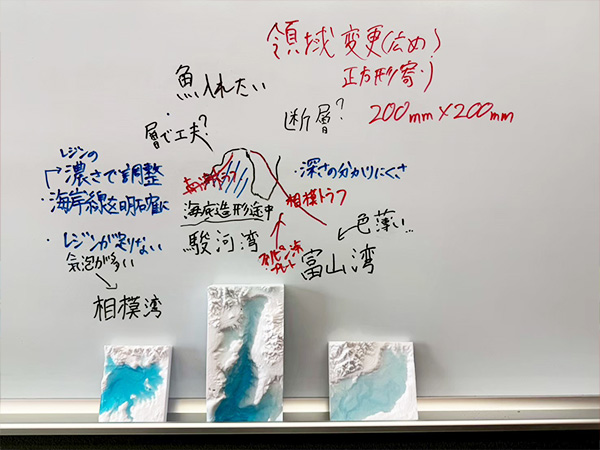 領域変更(広め)
正方形寄り
200mm×200mm
魚入れたい
断層?
層で工夫?
レジンの
濃さで調整
・海岸線を明確に
・レジンが足りない
気泡が多い
相模湾
南海トラフ
海底造形途中
駿河湾
・深さの分かりにくさ
相模トラフ
フィリピン海
プレート
色薄い…
富山湾